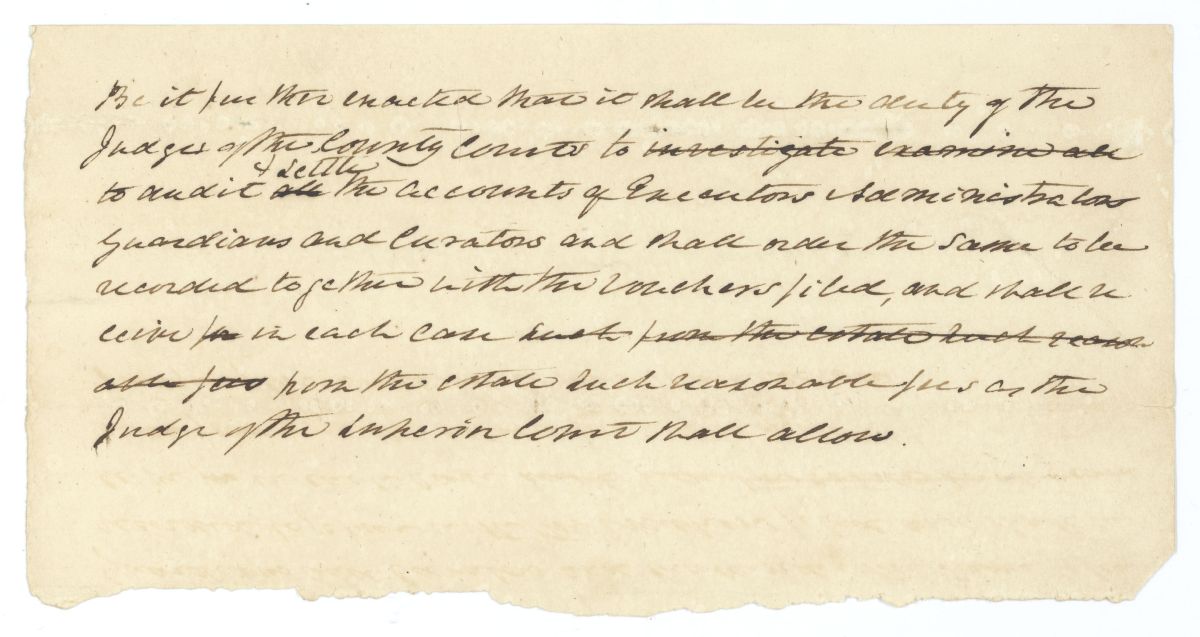 Be it further enacted that it shall be the duty of the
Judges of the County Courts to investigate examine all
& settle
to audit all the accounts of Executors Administrators
Guardians and Curators and shall order the same to be
recorded together with the vouchers filed, and shall re
ceive for in each case such from the estate such reason
able fees from the estate such reasonable fees as the
Judge of the Superior Court shall allow.